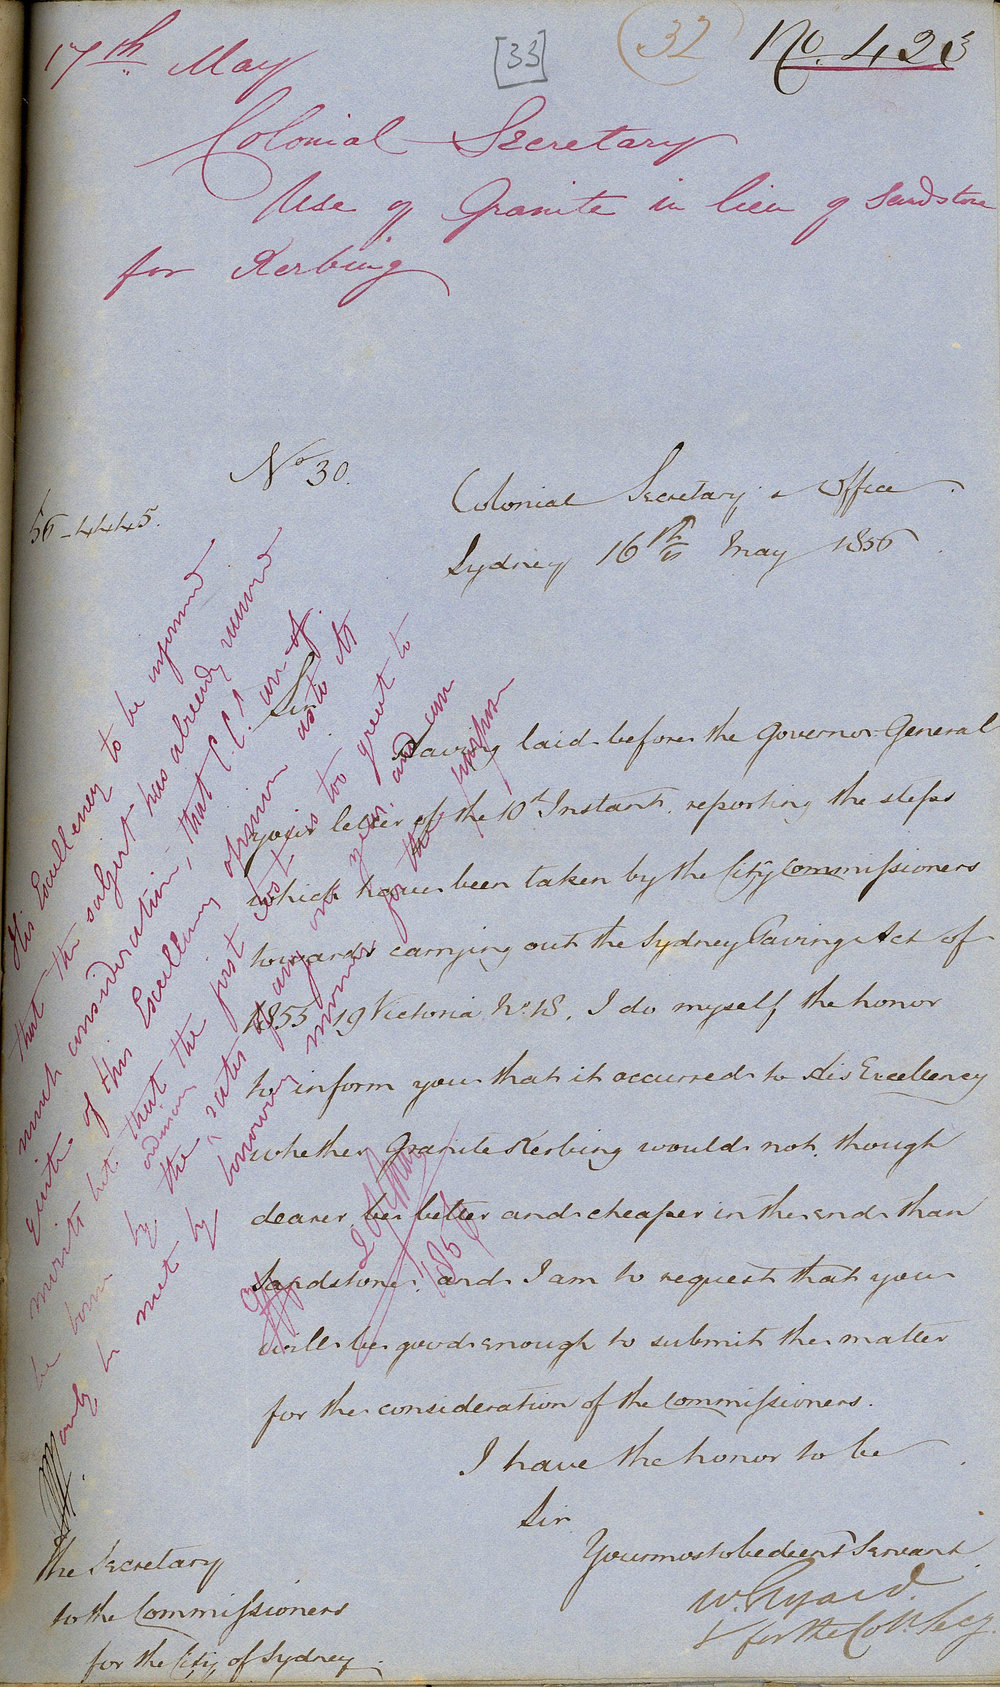 17th May
[33]
32
No. 423
Colonial Secretary
Use of Granite in lieu of Sandstone
for Kerbing
No 30.
56-4445.
Colonial Secretary's Office
Sydney 16th May 1856
Sir
Having laid before the Governor General
your letter of the 10th Instant, reporting the steps
which have been taken by the City Commissioners
towards carrying out the Sydney Paving Act of
1855 19 Victoria No 18, I do myself the honor
to inform you that it occurred to His Excellency
whether Granite Kerbing would not, though
dearer be better and cheaper in the end than
Sandstone, and I am to request that you
will be good enough to submit the matter
for the consideration of the Commissioners.
I have the honor to be
Sir
Your most obedient Servant
W. Elyard
for the Col. Secy.
The Secretary
to the Commissioners
for the City of Sydney.
His Excellency to be informed
that the subject has already received
much consideration; that C.C. are of
quite of this Excellency opinion as to its
merits but that the first cost is too great to
be borne by ordinary rates of any one year and can
only be met by borrowing monies for the purpose
1856